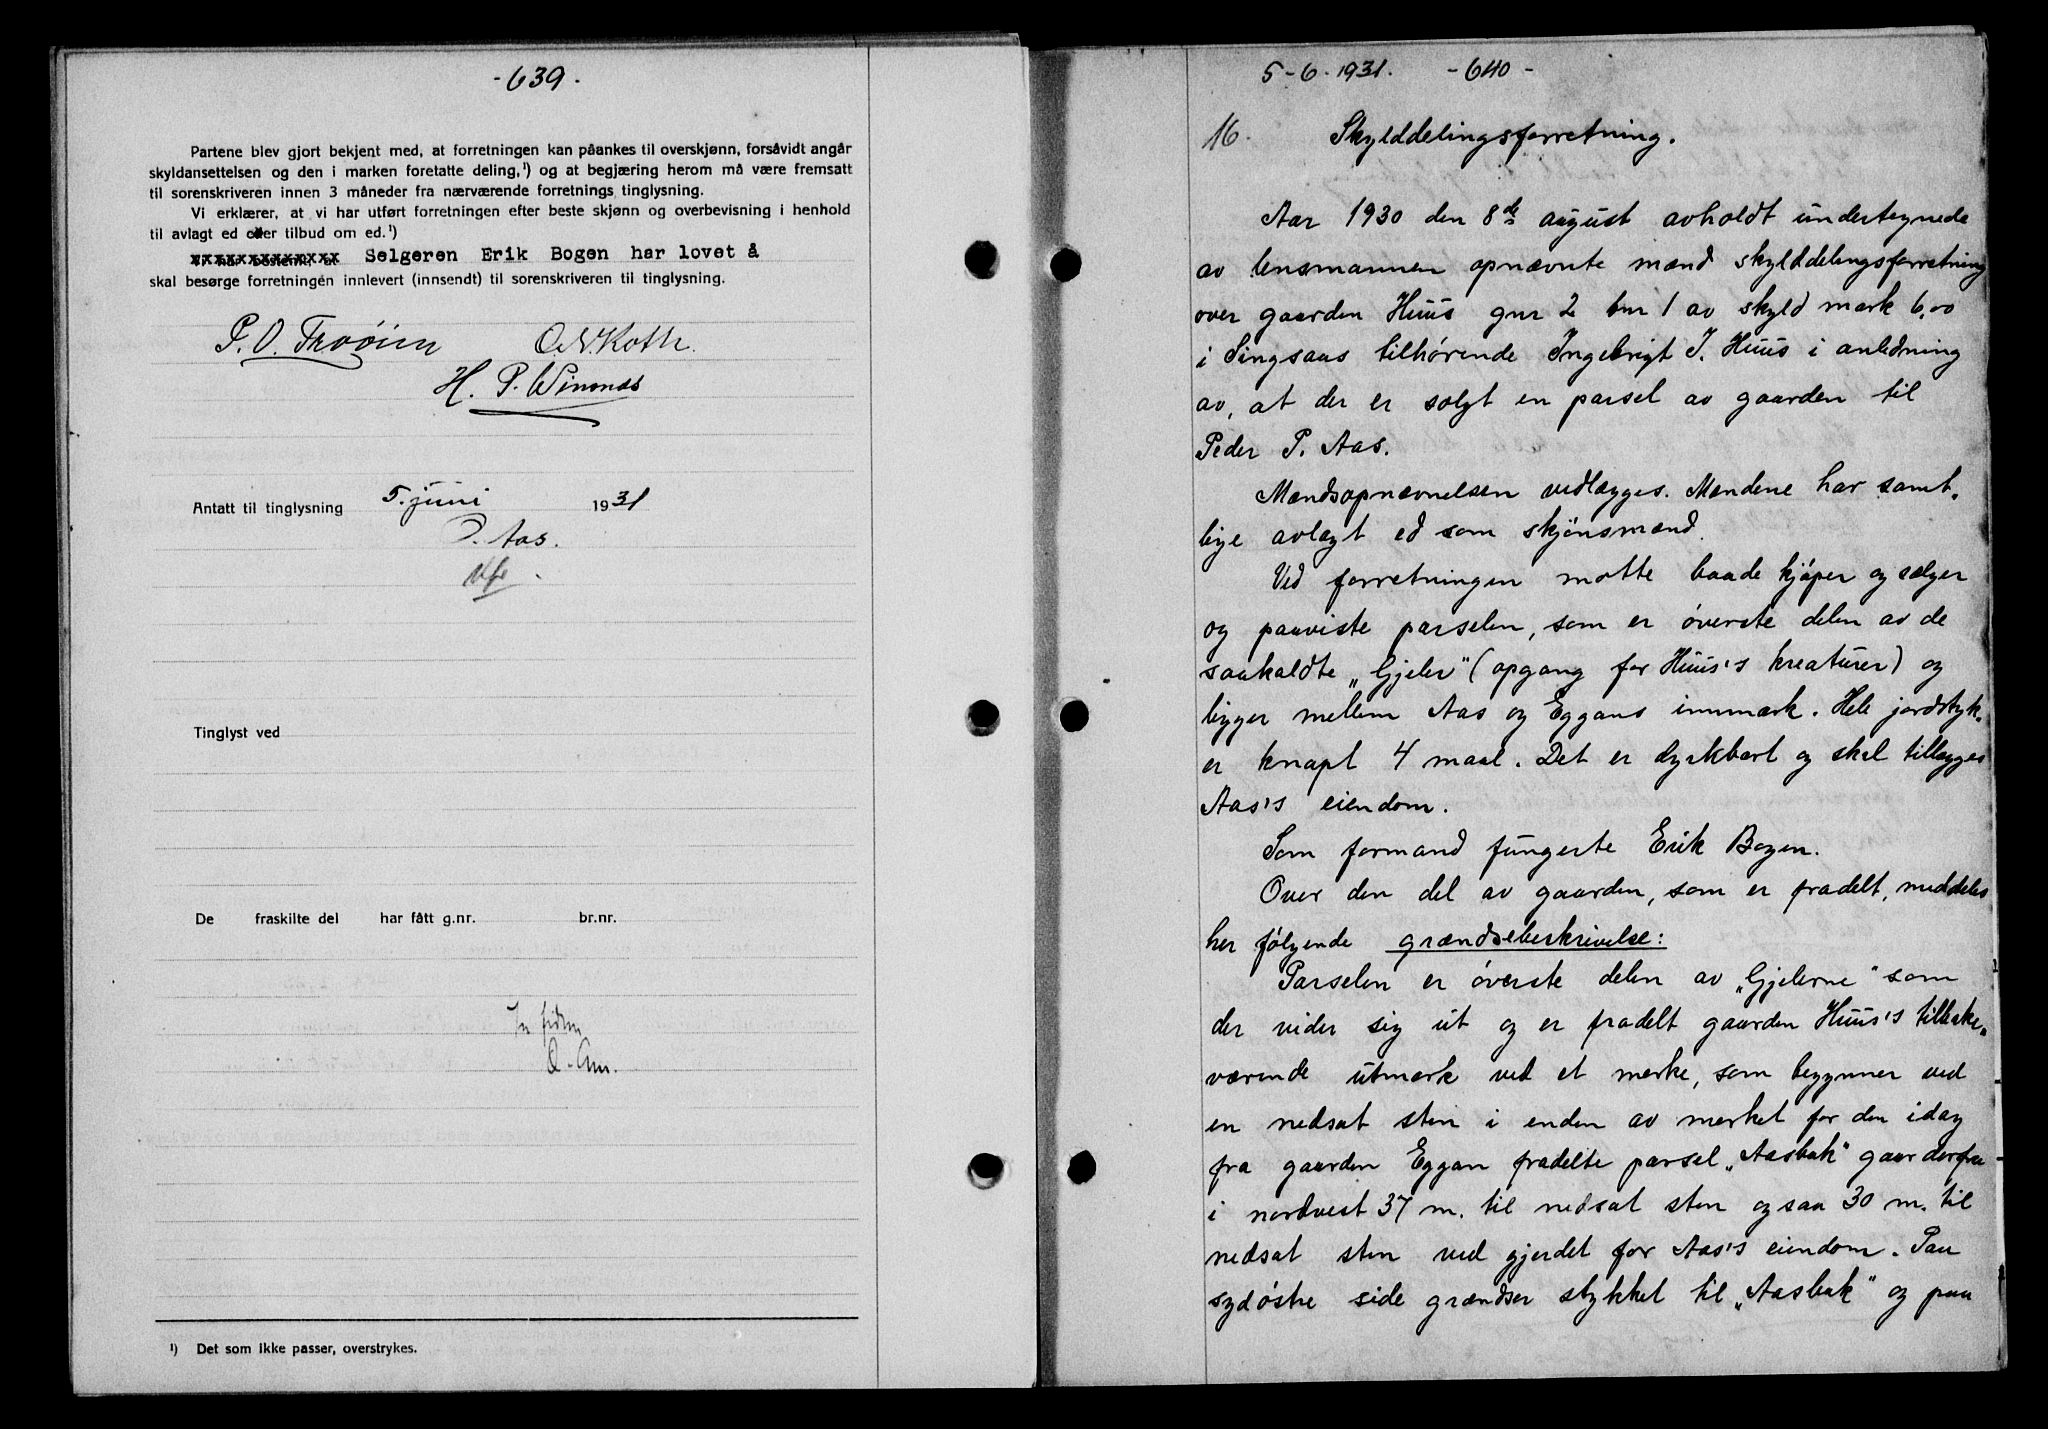 -639.
Partene blev gjort bekjent med, at forretningen kan påankes til overskjønn, forsåvidt angår
skyldansettelsen og den i marken foretatte deling,¹) og at begjæring herom må være fremsatt
til sorenskriveren innen 3 måneder fra nærværende forretnings tinglysning.
Vi erklærer, at vi har utført forretningen efter beste skjønn og overbevisning i henhold
til avlagt ed eller tilbud om ed.¹)
Selgeren Erik Bogen har lovet å
skal besørge forretningen innlevert (innsendt) til sorenskriveren til tinglysning.
P. O. Trøøien O. N. Koth.
H. P. Winsnes
Antatt til tinglysning 5. juni 1931
P. Aas.
Tinglyst ved
De fraskilte del har fått g.nr. br.nr.
¹) Det som ikke passer, overstrykes.
5-6-1931. -640-
16. Skylddelingsforretning.
Aar 1930 den 8de august avholdt undertegnede
av lensmannen opnævnte mænd skylddelingsforretning
over gaarden Huus gnr 2 bnr 1 av skyld mark 6,00
i Singsaas tilhørende Ingebrigt J. Huus i anledning
av, at der er solgt en parsel av gaarden til
Peder P. Aas.
Mændsopnævnelsen vedlægges. Mændene har samt-
lige avlagt ed som skjønsmænd.
Ved forretningen møtte baade kjøper og sælger
og paaviste parselen, som er øverste delen av de
saakaldte „Gjeler" (opgang for Huus's kreaturer) og
ligger mellem Aas og Eggans innmark. Hele jordstyk.
er knapt 4 maal. Det er dyrkbart og skal tillægges
Aas's eiendom.
Som formand fungerte Erik Bogen.
Over den del av gaarden, som er fradelt, meddeles
her følgende grændsebeskrivelse:
Parselen er øverste delen av „Gjelerne" som
der vider sig ut og er fradelt gaarden Huus's tilbake-
værende utmark ved et merke, som begynner ved
en nedsat sten i enden av merket for den idag
fra gaarden Eggan fradelte parsel „Aasbak" gaar derfra
i nordvest 37 m. til nedsat sten og saa 30 m. til
nedsat sten ved gjerdet for Aas's eiendom. Paa
sydøstre side grændser stykket til „Aasbak" og paa